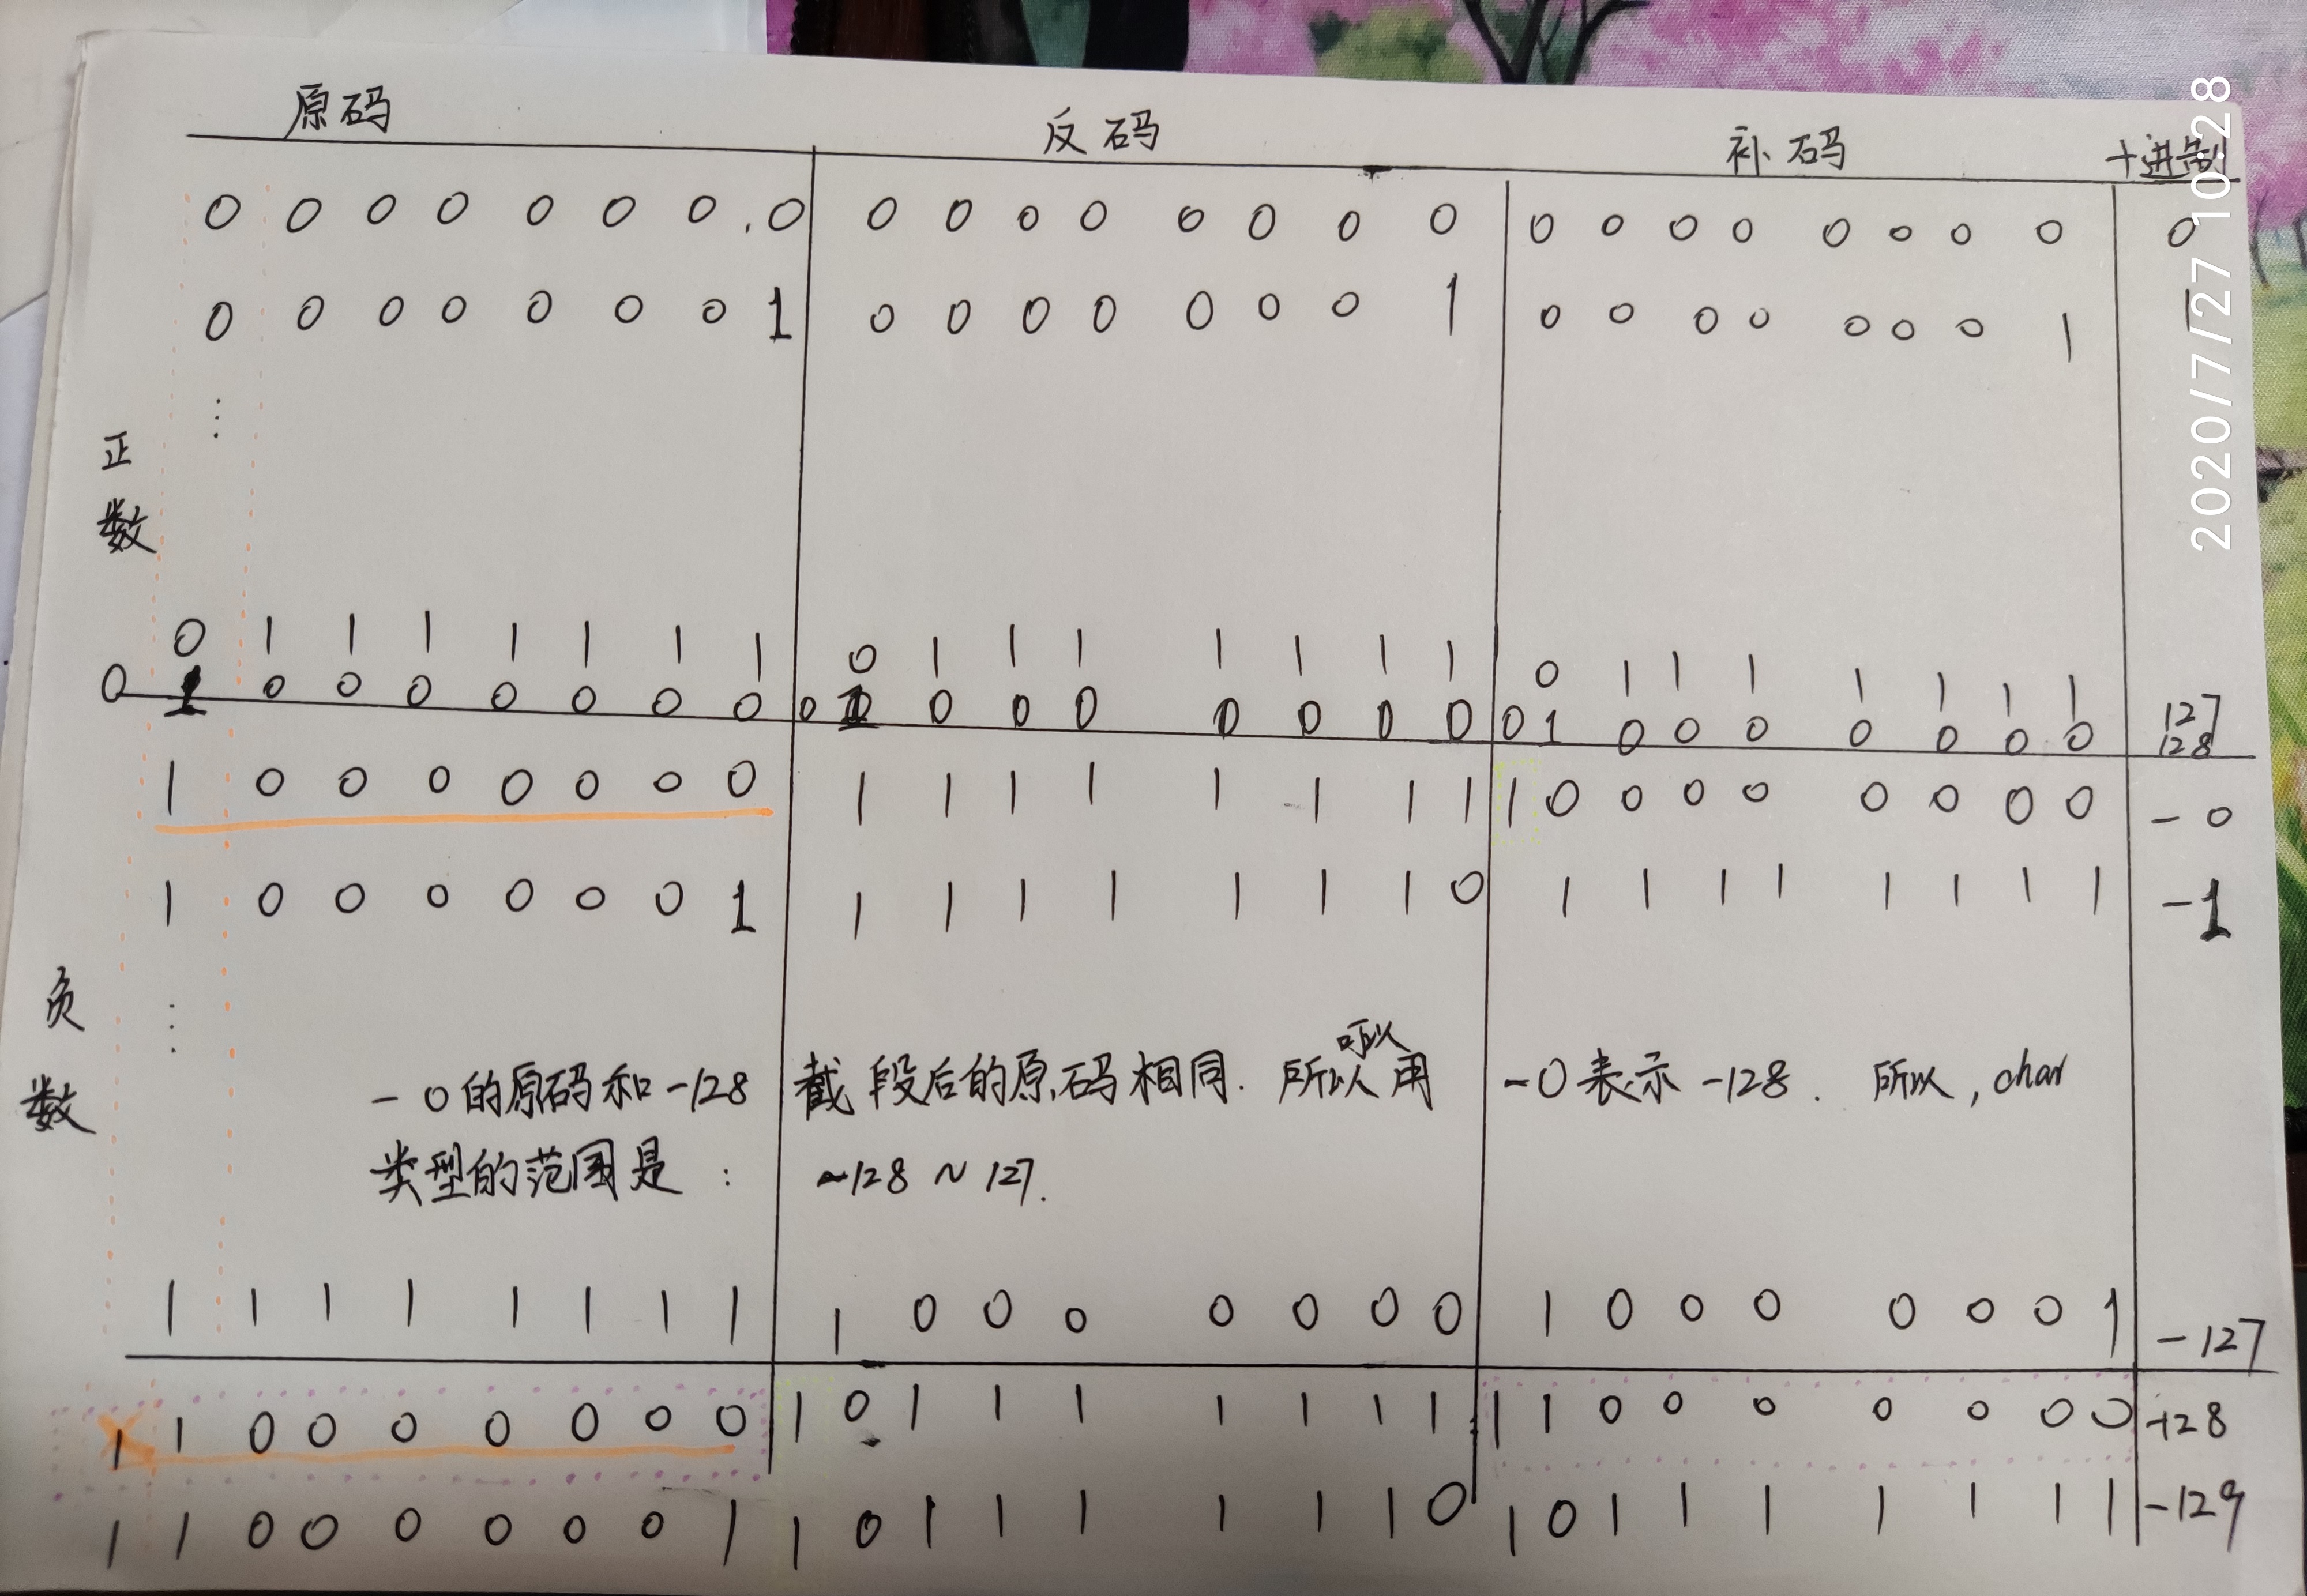 原码 反码 补码 十进制
0 0 0 0 0 0 0 0 0 0 0 0 0 0 0 0 0 0 0 0 0 0 0 0 0
0 0 0 0 0 0 0 1 0 0 0 0 0 0 0 1 0 0 0 0 0 0 0 1 1
正数
⋮
0 1 1 1 1 1 1 1 0 1 1 1 1 1 1 1 0 1 1 1 1 1 1 1 127
0 1 0 0 0 0 0 0 0 0 1 0 0 0 0 0 0 0 0 1 0 0 0 0 0 0 0 128
1 0 0 0 0 0 0 0 1 1 1 1 1 1 1 1 1 0 0 0 0 0 0 0 0 -0
1 0 0 0 0 0 0 1 1 1 1 1 1 1 1 0 1 1 1 1 1 1 1 1 -1
负数
⋮
-0的原码和-128截段后的原码相同. 所以用 -0表示-128. 所以, char
类型的范围是: ~128 ~ 127.
1 1 1 1 1 1 1 1 1 0 0 0 0 0 0 0 1 0 0 0 0 0 0 1 -127
1 1 0 0 0 0 0 0 0 1 0 1 1 1 1 1 1 1 1 1 0 0 0 0 0 0 0 -128
1 1 0 0 0 0 0 0 1 1 0 1 1 1 1 1 1 0 1 0 1 1 1 1 1 1 1 -129
2020/7/27 10:28